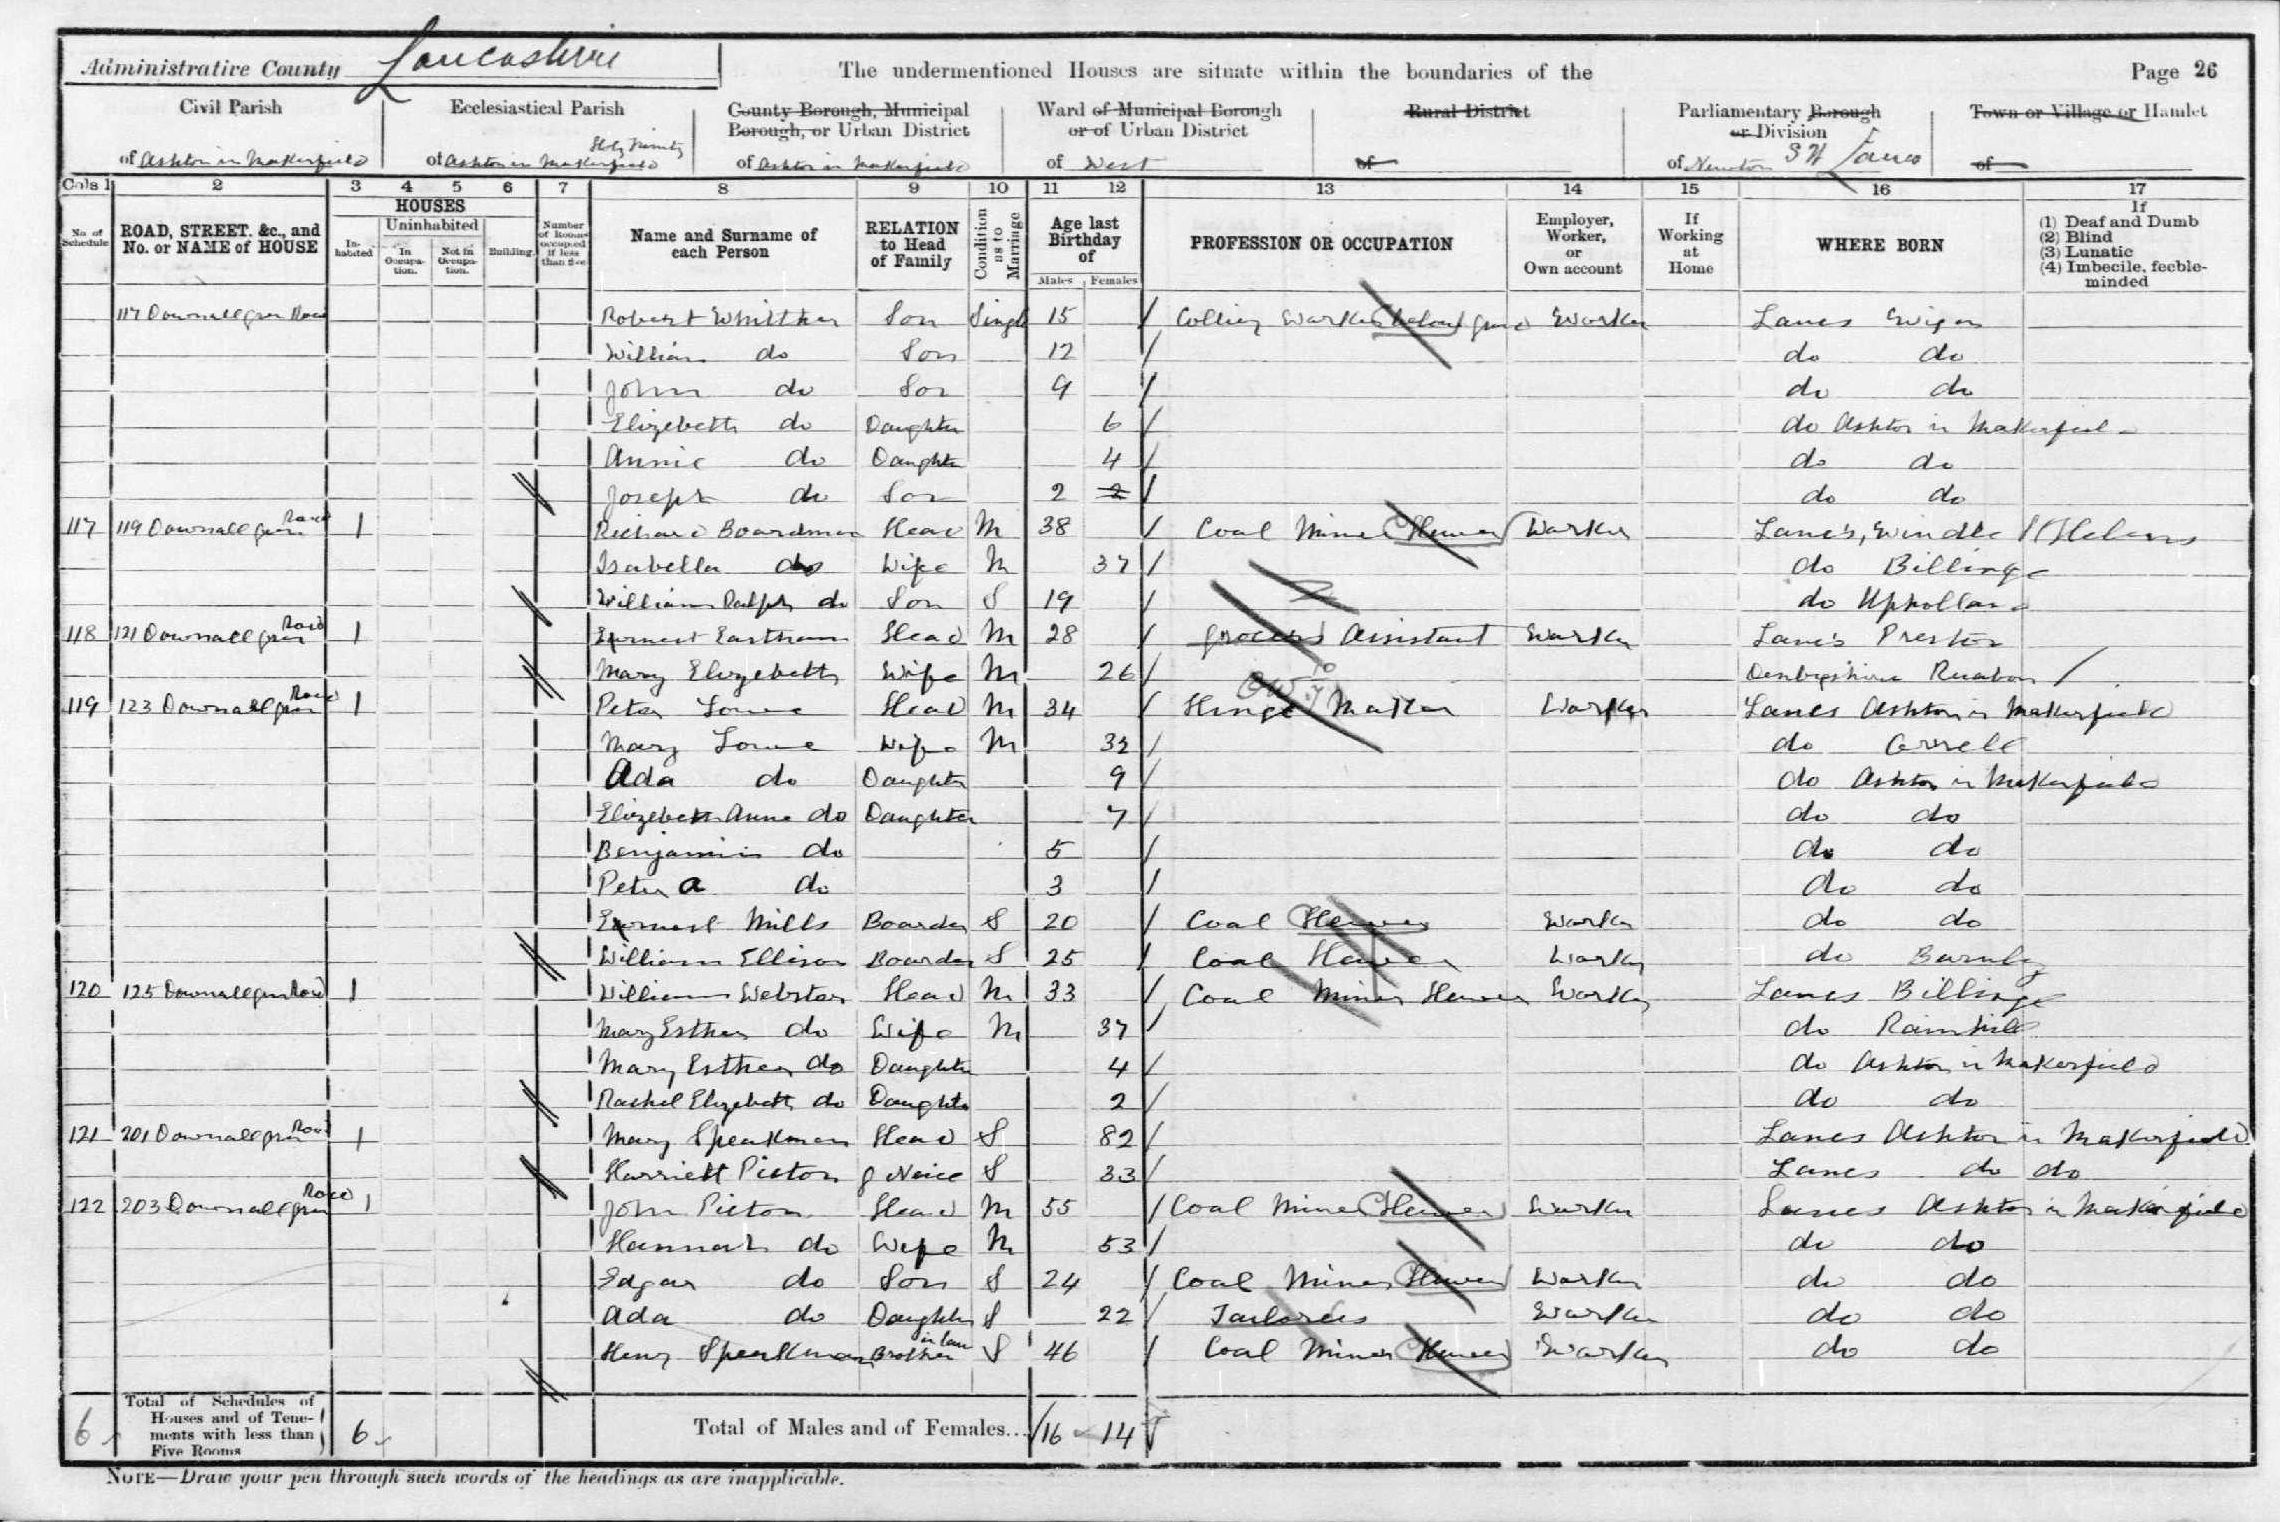 Administrative County Lancashire
The undermentioned Houses are situate within the boundaries of the
Page 26
Civil Parish
of Ashton in Makerfield
Ecclesiastical Parish
Holy Trinity
of Ashton in Makerfield
County Borough, Municipal
Borough, or Urban District
of Ashton in Makerfield
Ward of Municipal Borough
or of Urban District
of West
Rural District
of
Parliamentary Borough
or Division
of Newton S W Lancs
Town or Village or Hamlet
of
Cols 1 2 3 4 5 6 7 8 9 10 11 12 13 14 15 16 17
No. of Schedule
ROAD, STREET, &c., and No. or NAME of HOUSE
HOUSES
Inhabited
Uninhabited
In Occupation.
Not in Occupation.
Building.
Number of Rooms occupied if less than five
Name and Surname of each Person
RELATION to Head of Family
Condition as to Marriage
Age last Birthday of
Males Females
PROFESSION OR OCCUPATION
Employer, Worker, or Own account
If Working at Home
WHERE BORN
If
(1) Deaf and Dumb
(2) Blind
(3) Lunatic
(4) Imbecile, feeble-minded
117 Downall green Road Robert Whittker Son Single 15 Colliery Worker below ground Worker Lancs Wigan
William do Son 12 do do
John do Son 9 do do
Elizebeth do Daughter 6 do Ashton in Makerfield
Annie do Daughter 4 do do
Joseph do Son 2 2 do do
117 119 Downall green Road 1 Richard Boardman Head M 38 Coal Miner Hewer Worker Lancs, Windle St Helens
Isabella do Wife M 37 do Billinge
William Ralph do Son S 19 do Upholland
118 121 Downall green Road 1 Ernest Eastham Head M 28 Grocers Assistant Worker Lancs Preston
Mary Elizebeth Wife M 26 Denbyshire Ruabon
119 123 Downall green Road 1 Peter Lowe Head M 34 Hinge Maker Worker Lancs Ashton in Makerfield
Mary Lowe Wife M 32 do Orrell
Ada do Daughter 9 do Ashton in Makerfield
Elizebeth Anne do Daughter 7 do do
Benjamin do 5 do do
Peter A do 3 do do
Ernest Mills Boarder S 20 Coal Hewer Worker do do
William Ellison Boarder S 25 Coal Hewer Worker do Burnley
120 125 Downall green Road 1 William Webster Head M 33 Coal Miner Hewer Worker Lancs Billinge
Mary Esther do Wife M 37 do Rainhill
Mary Esther do Daughter 4 do Ashton in Makerfield
Rachel Elizebeth do Daughter 2 do do
121 201 Downall green Road 1 Mary Speakman Head S 82 Lancs Ashton in Makerfield
Harriett Picton g Neice S 33 Lancs do do
122 203 Downall green Road 1 John Picton Head M 55 Coal Miner Hewer Worker Lancs Ashton in Makerfield
Hannah do Wife M 53 do do
Edgar do Son S 24 Coal Miner Hewer Worker do do
Ada do Daughter S 22 Tailoress Worker do do
Henry Speakman Brother in law S 46 Coal Miner Hewer Worker do do
6 Total of Schedules of Houses and of Tenements with less than Five Rooms 6 Total of Males and of Females... 16 14
NOTE—Draw your pen through such words of the headings as are inapplicable.